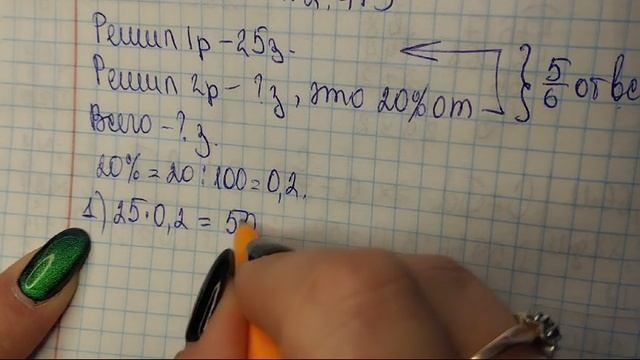 Решил 1р - 25з.
Решил 2р - ?з, это 20% от } 5/6 от все
Всего - ? з.
20% = 20 : 100 = 0,2.
1) 25 · 0,2 = 5